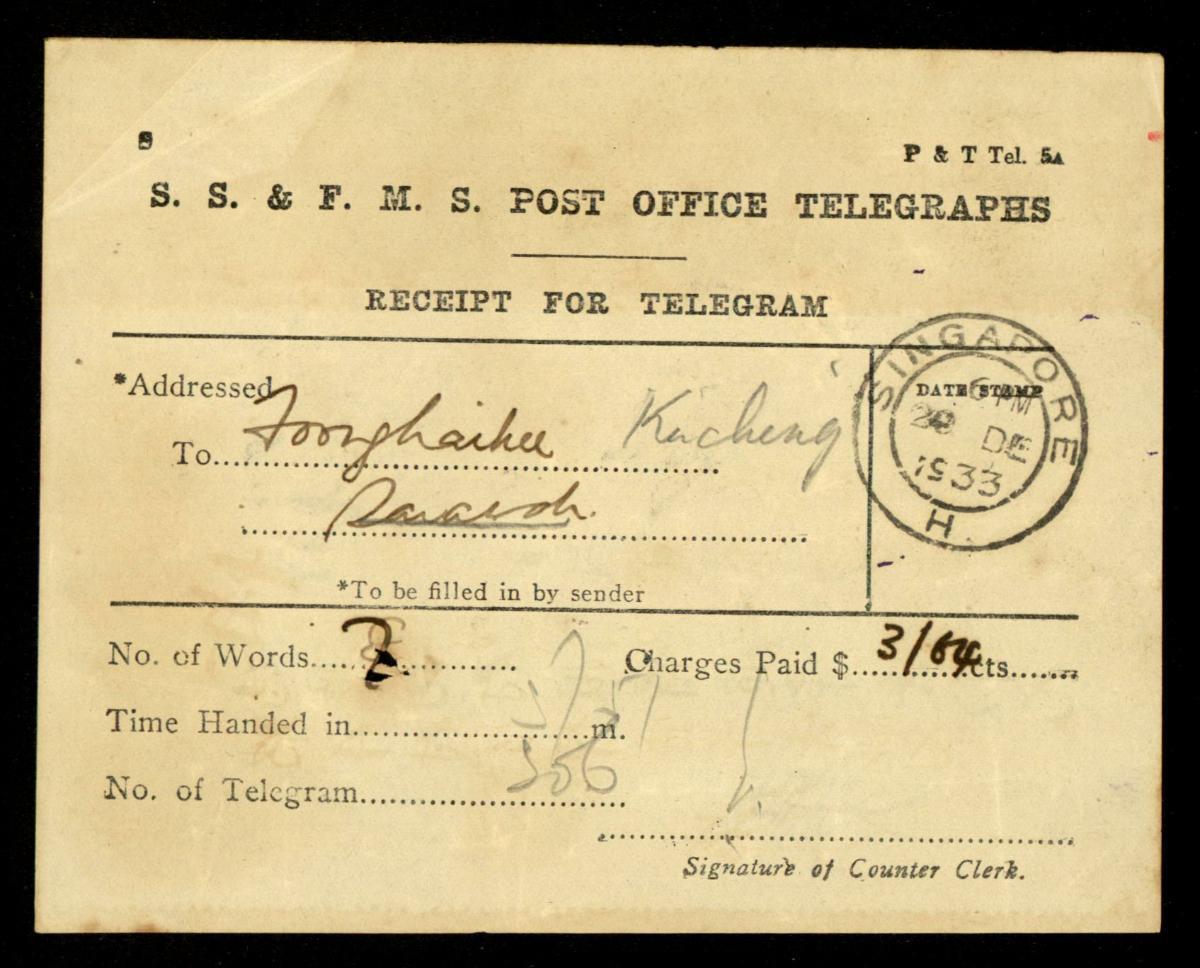 S
P & T Tel. 5A
S. S. & F. M. S. POST OFFICE TELEGRAPHS
RECEIPT FOR TELEGRAM
*Addressed
To Foonghaikee Kucheng
Sarawak.
*To be filled in by sender
DATE STAMP
SINGAPORE
6 PM
28 DE
1933
H
No. of Words
Charges Paid $ 3/64 cts
Time Handed in m.
No. of Telegram 506
Signature of Counter Clerk.